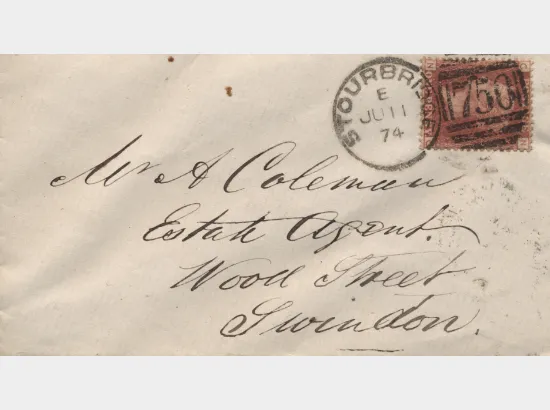 STOURBRIDGE
E
JU 11
74
756
Mr A Coleman
Estate Agent.
Wood Street
Swindon.